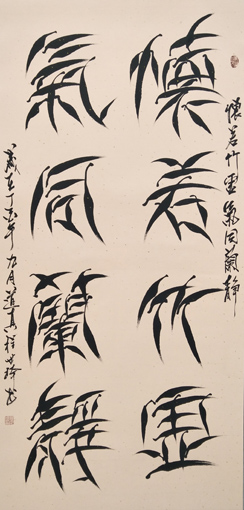 懷若竹虛氣同蘭靜
懷若竹虛
氣同蘭靜
歲在丁亥年九月書